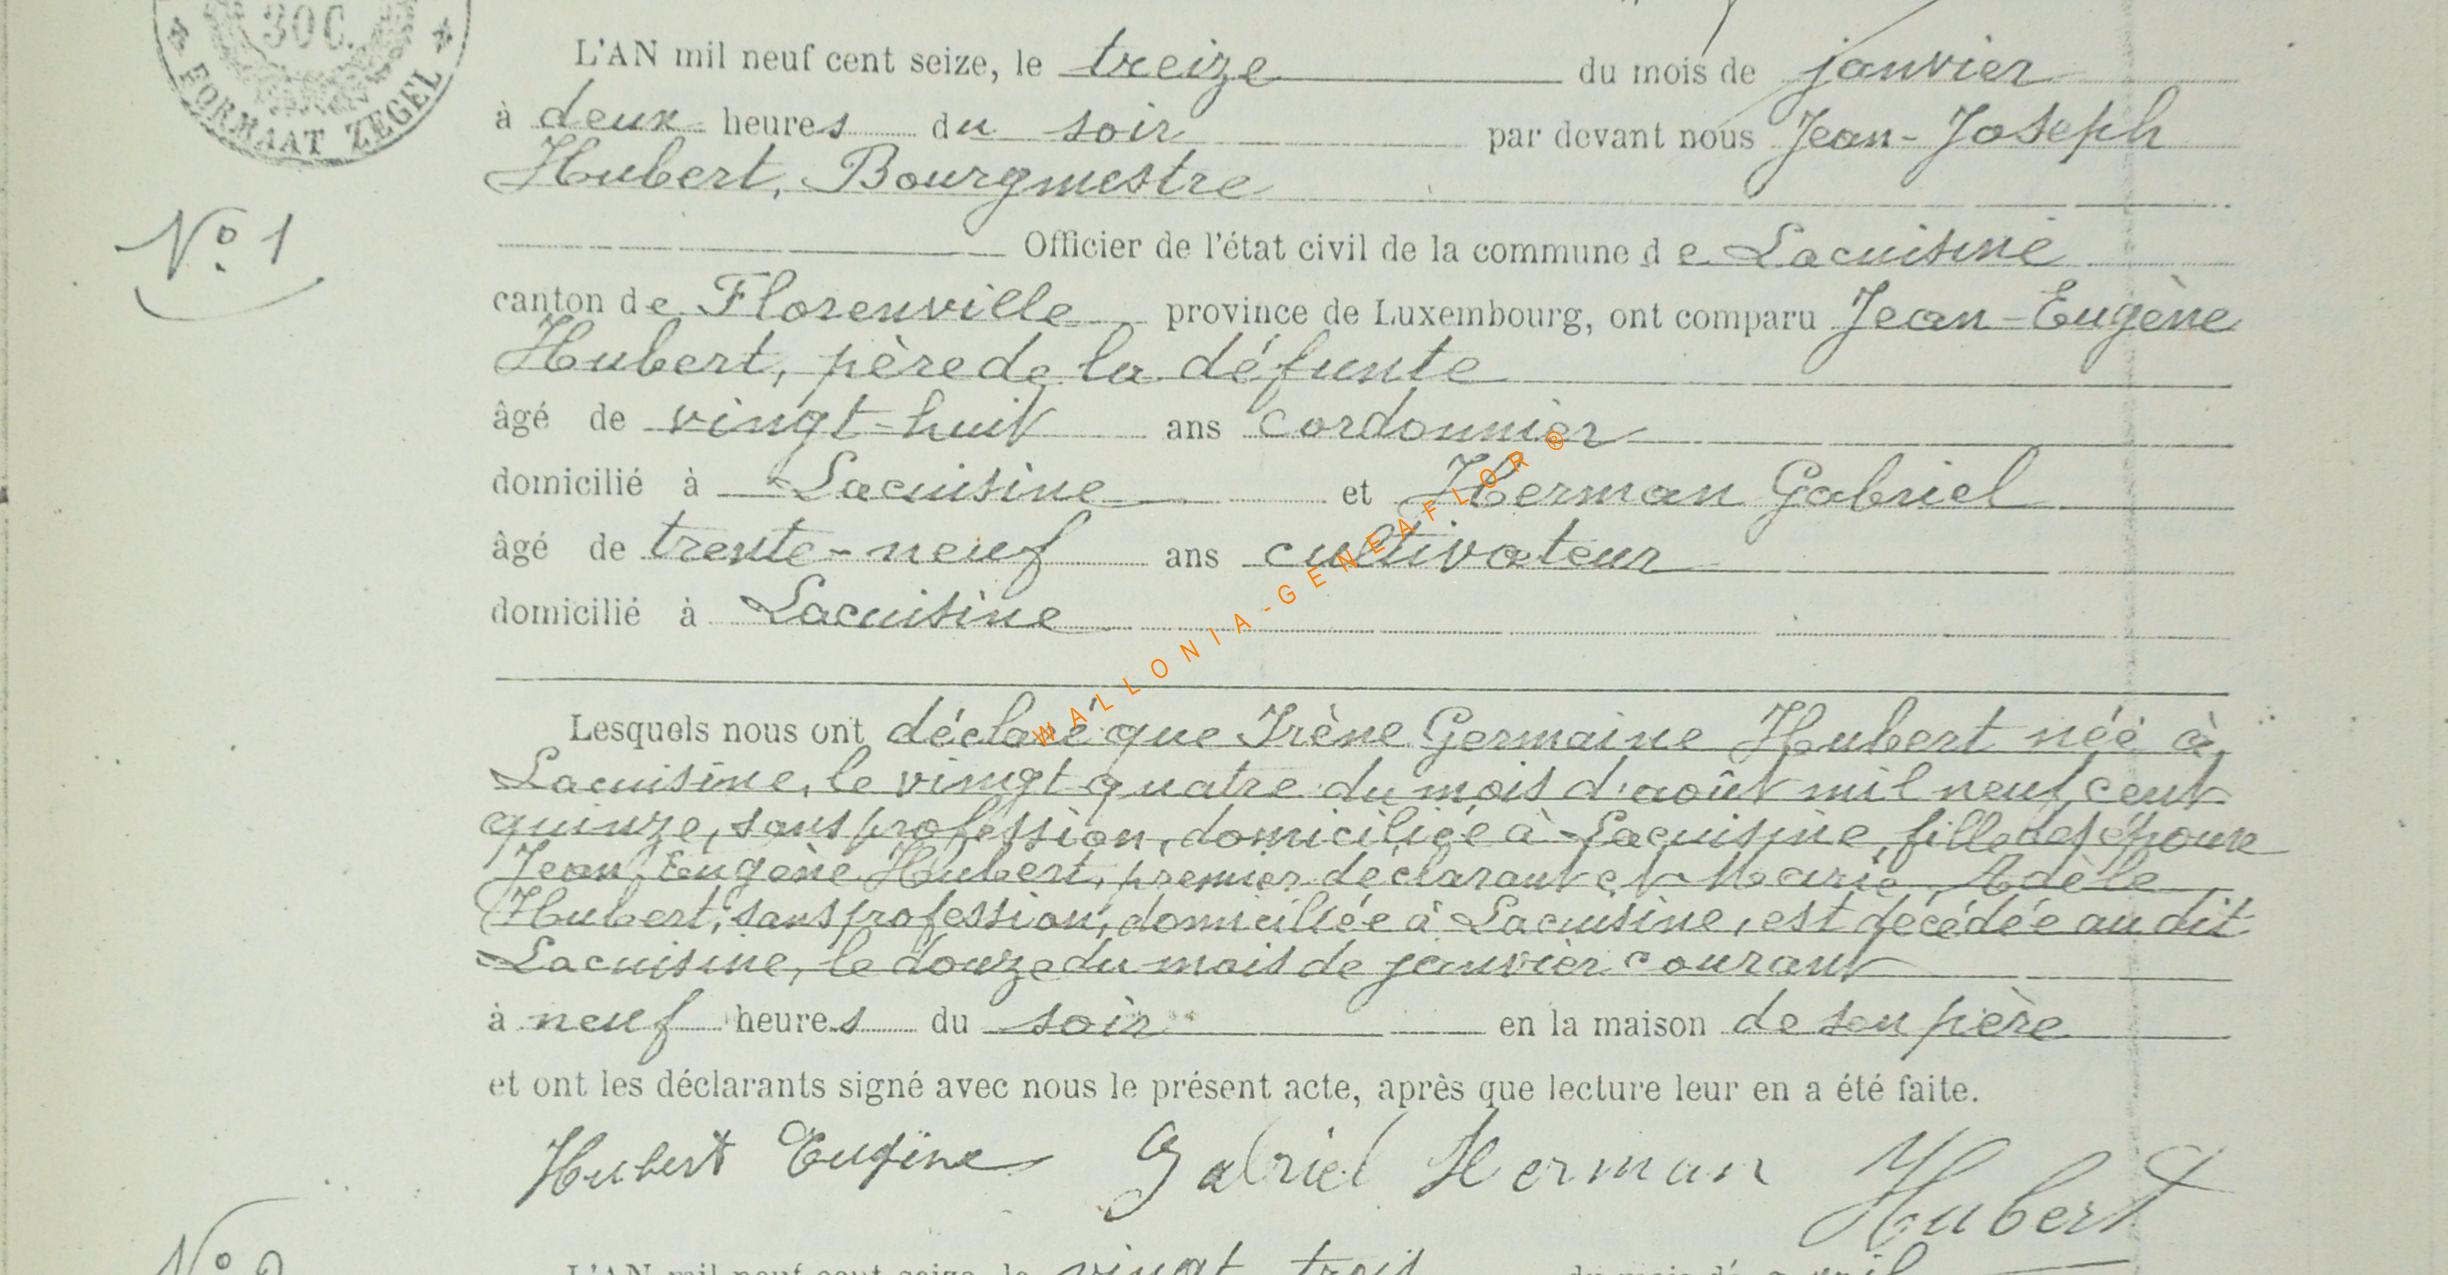 30C.
* FORMAAT ZEGEL *
L'AN mil neuf cent seize, le treize du mois de janvier
à deux heures du soir par devant nous Jean-Joseph
Hubert, Bourgmestre
N° 1
Officier de l'état civil de la commune de Lacuisine
canton de Florenville province de Luxembourg, ont comparu Jean-Eugène
Hubert, père de la défunte
âgé de vingt-huit ans cordonnier
domicilié à Lacuisine et Herman Gabriel
âgé de trente-neuf ans cultivateur
domicilié à Lacuisine
WALLONIA-GENEAFLOR®
Lesquels nous ont déclaré que Irène Germaine Hubert née à
Lacuisine, le vingt quatre du mois d'août mil neuf cent
quinze, sans profession, domiciliée à Lacuisine, fille des époux
Jean Eugène Hubert, premier déclarant et Marie Adèle
Hubert, sans profession, domiciliée à Lacuisine, est décédée au dit
Lacuisine, le douze du mois de janvier courant
à neuf heures du soir en la maison de son père
et ont les déclarants signé avec nous le présent acte, après que lecture leur en a été faite.
Hubert Eugène Gabriel Herman Hubert
N° 2
L'AN mil neuf cent seize, le vingt trois du mois d'avril